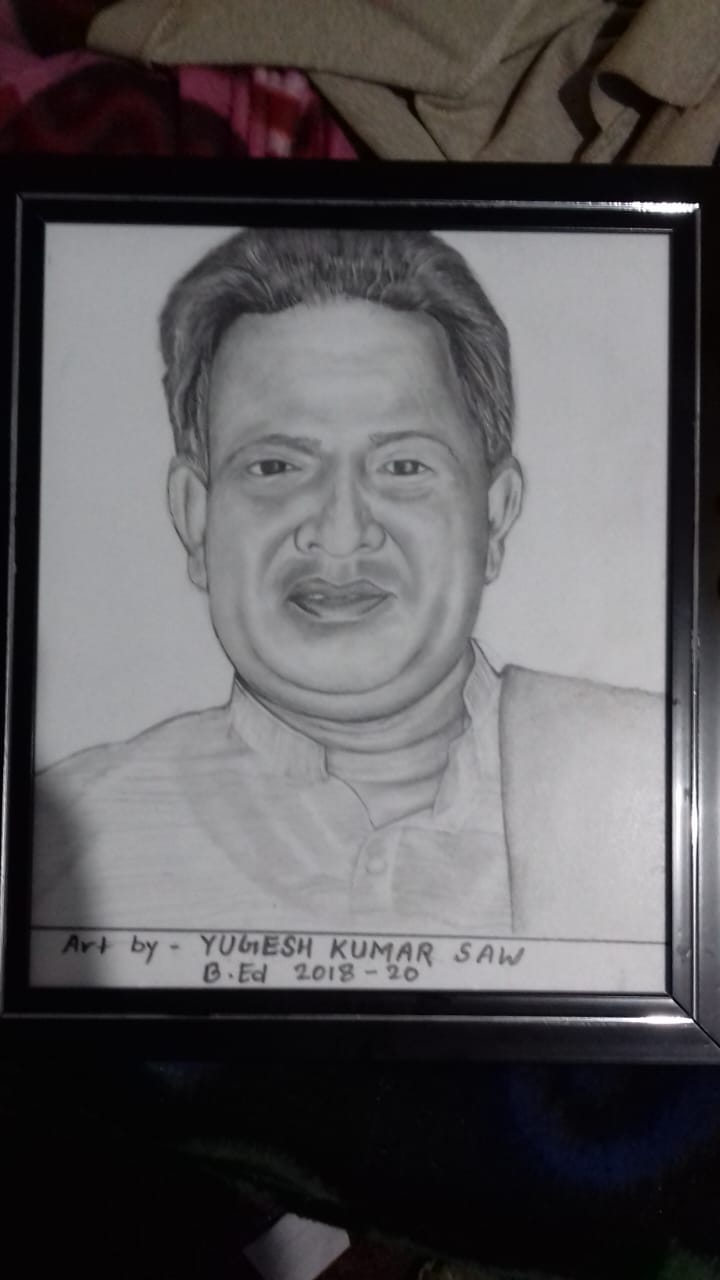 Art by - YUGESH KUMAR SAW
B.Ed 2018-20